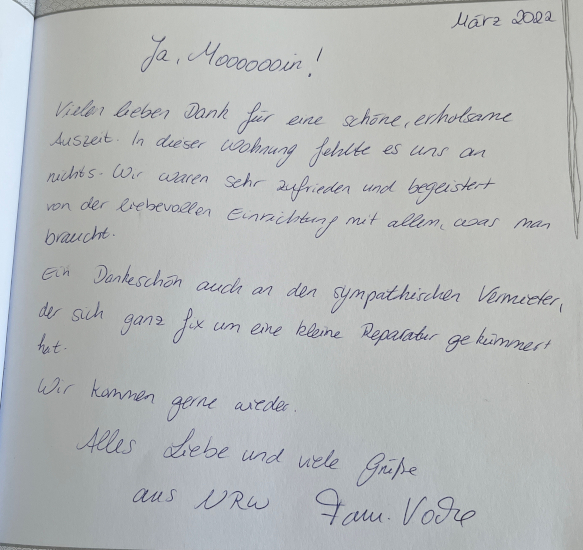 März 2022
Ja, Mooooooin!
Vielen lieben Dank für eine schöne, erholsame
Auszeit. In dieser Wohnung fehlte es uns an
nichts. Wir waren sehr zufrieden und begeistert
von der liebevollen Einrichtung mit allem, was man
braucht.
Ein Dankeschön auch an den sympathischen Vermieter,
der sich ganz fix um eine kleine Reparatur gekümmert
hat.
Wir kommen gerne wieder.
Alles Liebe und viele Grüße
aus NRW Fam.